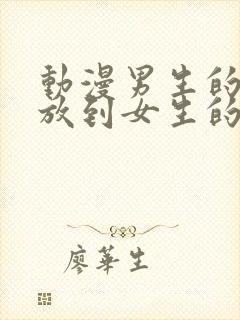 動漫男生的
放到女生的
廖華生